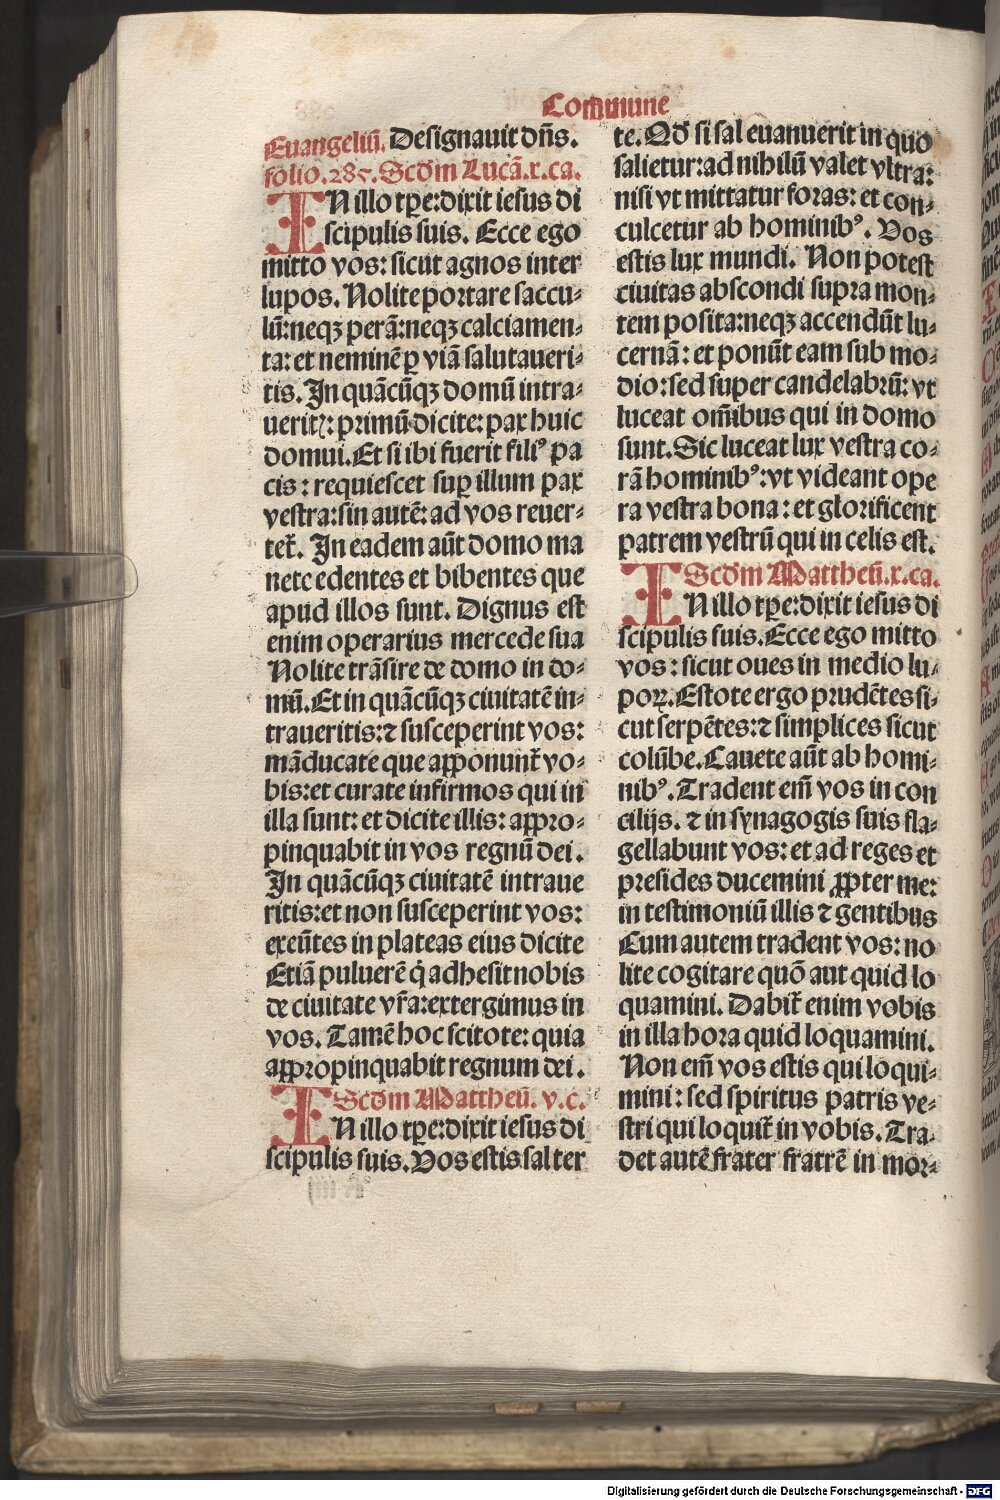 Commune
Euangeliū. Designauit dn̄s.
folio.285. Scd̄m Lucā.x.ca.
IN illo tp̄e:dixit iesus di
scipulis suis. Ecce ego
mitto vos: sicut agnos inter
lupos. Nolite portare saccu⸗
lū:neqꝫ perā:neqꝫ calciamen⸗
ta: et neminē ꝑ viā salutaueri⸗
tis. In quācūqꝫ domū intra⸗
ueritꝭ: primū dicite: pax huic
domui. Et si ibi fuerit filiꝰ pa
cis: requiescet suꝑ illum pax
vestra: sin autē: ad vos reuer⸗
tet᷑. In eadem aūt domo ma
nete edentes et bibentes que
apud illos sunt. Dignus est
enim operarius mercede sua
Nolite trāsire de domo in do⸗
mū. Et in quācūqꝫ ciuitatē in⸗
traueritis:⁊ susceperint vos:
māducate que apponunt᷑ vo⸗
bis: et curate infirmos qui in
illa sunt: et dicite illis: appro⸗
pinquabit in vos regnū dei.
In quācūqꝫ ciuitatē intraue
ritis: et non susceperint vos:
exeūtes in plateas eius dicite
Etiā puluerē q̇ adhesit nobis
de ciuitate vr̄a: extergimus in
vos. Tamē hoc scitote: quia
appropinquabit regnum dei.
Scd̄m Mattheū. v.c.
IN illo tp̄e:dixit iesus di
scipulis suis. Vos estis sal ter
te. Qd̄ si sal euanuerit in quo
salietur: ad nihilū valet vltra:
nisi vt mittatur foras: et con⸗
culcetur ab hominibꝰ. Vos
estis lux mundi. Non potest
ciuitas abscondi supra mon⸗
tem posita: neqꝫ accendūt lu⸗
cernā: et ponūt eam sub mo⸗
dio: sed super candelabrū: vt
luceat om̄ibus qui in domo
sunt. Sic luceat lux vestra co⸗
rā hominibꝰ: vt videant ope
ra vestra bona: et glorificent
patrem vestrū qui in celis est.
Scd̄m Mattheū.x.ca.
IN illo tp̄e:dixit iesus di
scipulis suis. Ecce ego mitto
vos: sicut oues in medio lu⸗
poꝝ. Estote ergo prudētes si⸗
cut serpētes:⁊ simplices sicut
colūbe. Cauete aūt ab homi⸗
nibꝰ. Tradent em̄ vos in con
cilijs. ⁊ in synagogis suis fla⸗
gellabunt vos: et ad reges et
presides ducemini ꝓpter me:
in testimoniū illis ⁊ gentibus
Cum autem tradent vos: no
lite cogitare quō aut quid lo
quamini. Dabit᷑ enim vobis
in illa hora quid loquamini.
Non em̄ vos estis qui loqui⸗
mini: sed spiritus patris ve⸗
stri qui loquit᷑ in vobis. Tra⸗
det autē frater fratrē in mor⸗
Digitalisierung gefördert durch die Deutsche Forschungsgemeinschaft - DFG